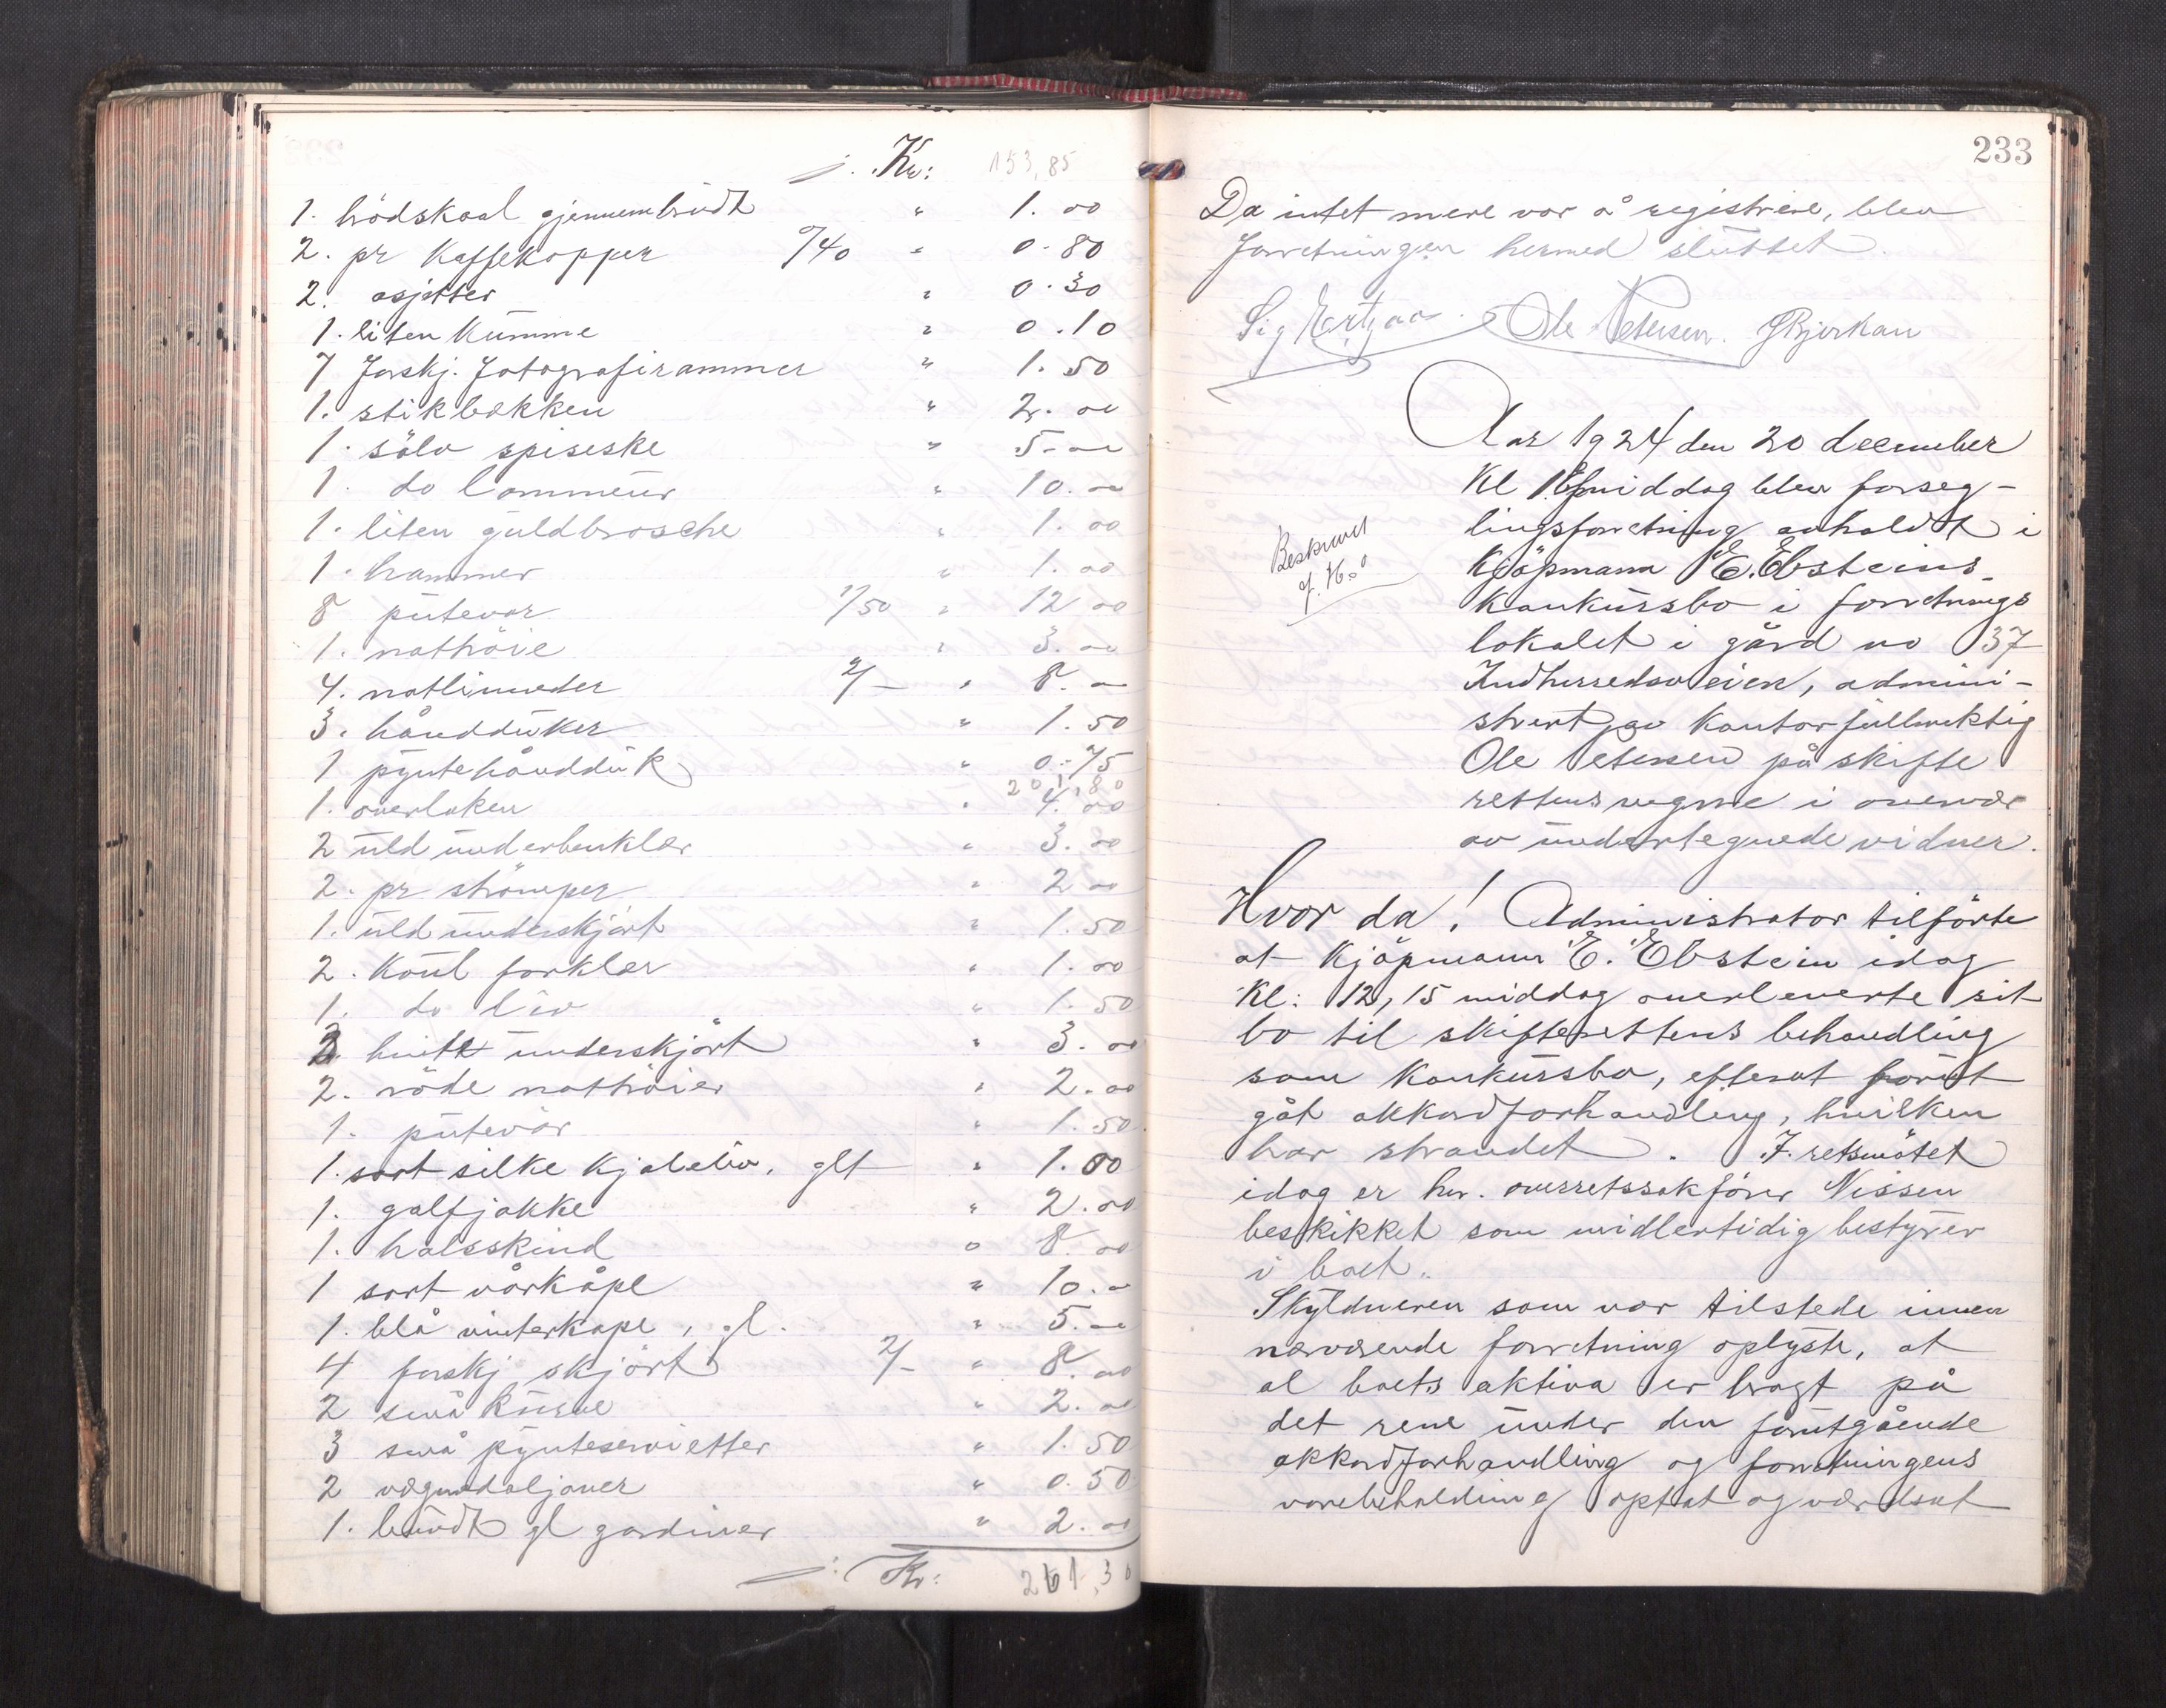 Kr: 153,85
1. brödskaal gjennembrudt " 1.00
2. pr Kaffekopper 0/40 " 0.80
2. asjetter " 0.30
1. liten Kumme " 0.10
7 forskj. fotografirammer " 1.50
1. stikbækken " 2.00
1. sölv spiseske " 5.00
1. do lommeur " 10.00
1. liten guldbrosche " 1.00
1. hammer " 1.00
8 putevar 1/50 " 12 00
1. nattröie " 3.00
4. natlinneder 2/- " 8.00
3. håndduker " 1.50
1 pyntehåndduk " 0.75
201,80
1. overlaken " 4.00
2 uld underbenklær " 3.00
2. pr strömper " 2 00
1. uld underskjört " 1.50
2. Köul forklær " 1.00
1. do liv " 1.50
2. hvite underskjört " 3.00
2. röde nattröier " 2.00
1. putevår " 1.50
1. sort silke Kjoleliv, glt " 1.00
1. golfjakke " 2.00
1. halsskind " 8.00
1 sort vårkåpe " 10.00
1. blå vinterkape, gl. " 5.00
4 forskj skjört 2/- " 8.00
2 små Kurve " 2.00
3 små pynteservietter " 1.50
2 vægmedaljoner " 0.50
1. bundt gl gardiner " 2.00
Kr: 261,30
233
Da intet mere var å registrere, blev
forretningen hermed sluttet.
Sig Ole Petersen. Bjerkan
Aar 1924 den 20 december
Kl middag blev forseg-
lingsforretning avholdt i
Kjöpmann E. Ebsteins
Konkursbo i forretnings
lokalet i gård no 37
Indherredsveien, admini-
strert av Kontorfullmektig
Ole Petersen på skifte
rettens vegne i overvær
av undertegnede vidner.
Beskrevet
Hvor da! Administrator tilförte
at Kjöpmann E. Ebstein idag
Kl: 12,15 middag overleverte sit
bo til skifterettens behandling
som Konkursbo, efterat forut
gåt akkordforhandling, hvilken
har strandet. I retsmötet
idag er hr. overretssakförer Nissen
beskikket som midlertidig bestyrer
i boet.
Skyldneren som var tilstede innen
nærværende forretning oplyste, at
al boets aktiva er bragt på
det rene under den forutgående
akkordforhandling og forretningens
varebeholdning optat og værdsat